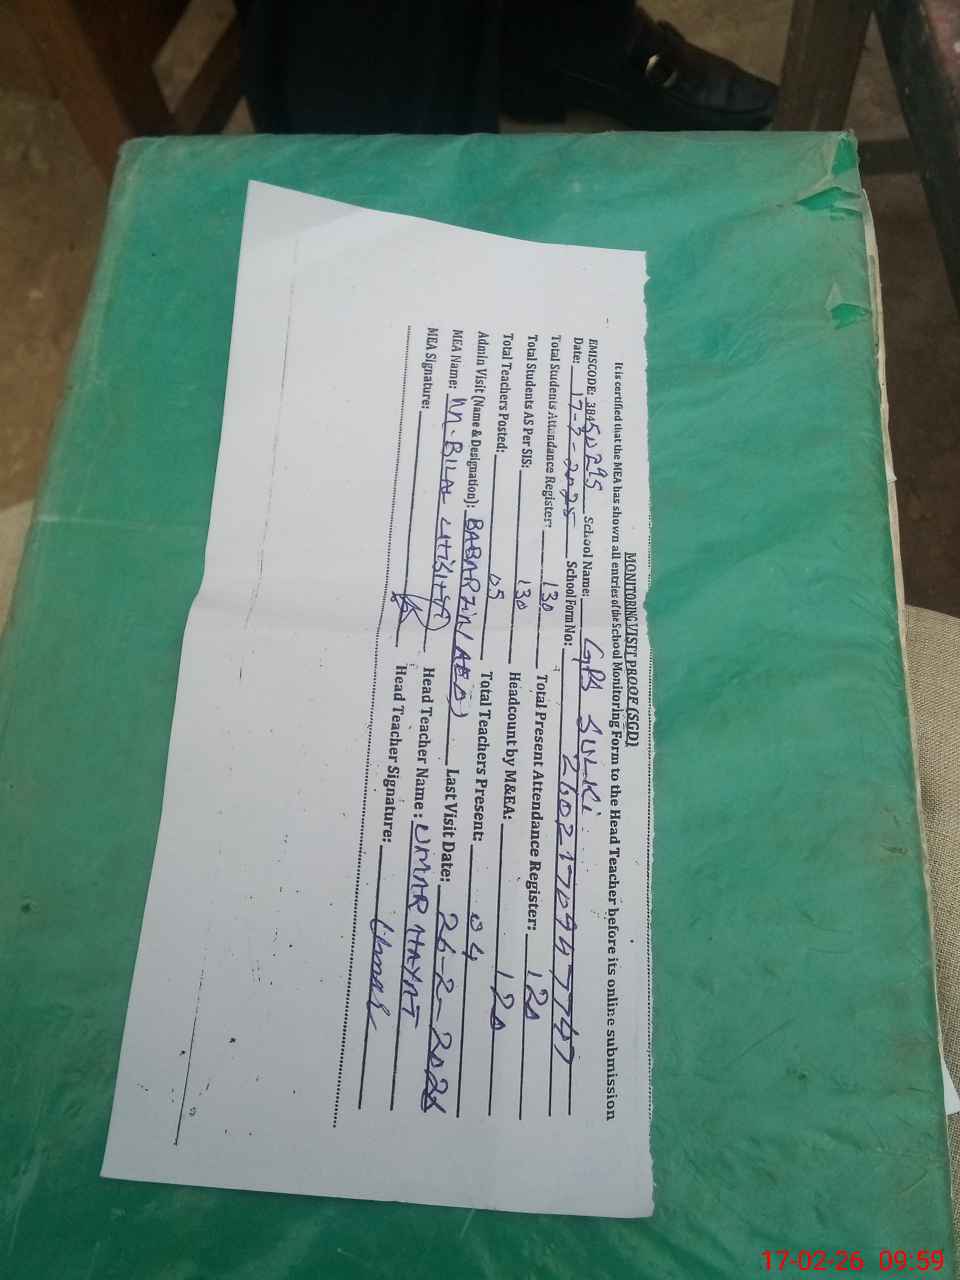 MONITORING VISIT PROOF (SGD)
It is certified that the MEA has shown all entries of the School Monitoring Form to the Head Teacher before its online submission
EMISCODE: 38450295 School Name: GPS SULKI
Date: 17-2-2025 School Form No: 2602170947747
Total Students Attendance Register: 130 Total Present Attendance Register: 120
Total Students AS Per SIS: 130 Headcount by M&EA: 120
Total Teachers Posted: 05 Total Teachers Present: 04
Admin Visit (Name & Designation): BABAR Last Visit Date: 26-2-2025
MEA Name: M. BILAL Head Teacher Name: UMAR HAYAT
MEA Signature: Head Teacher Signature: Umar
17-02-26 09:59